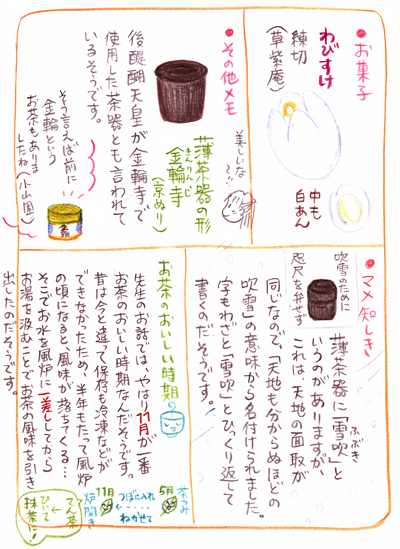 ● お菓子
わびすけ
練切
(草紫庵)
中も
白あん
● その他メモ
美しいな
〜!!
薄茶器の形
きんりんじ
金輪寺
(京ぬり)
後醍醐天皇が金輪寺で
使用した茶器とも言われて
いるそうです。
そう言えば前に
金輪という
お茶もありま
したね(小山園)
● マメ知しき
吹雪のために
咫尺を弁せず
薄茶器に「雪吹」と
ふぶき
いうのがありますが、
これは、天地の面取が
同じなので、「天地も分からぬほどの
吹雪」の意味から名付けられました。
字もわざと「雪吹」とひっくり返して
書くのだそうです。
お茶のおいしい時期
先生のお話では、やはり11月が一番
お茶のおいしい時期なんだそうです。
昔は今と違って保存も冷凍などが
できなかったため、半年もたって風炉
の頃になると、風味が落ちてくる…
そこでお水を風炉に一差ししてから
お湯を汲むことでお茶の風味を引き
出したのだそうです。
5月
茶つみ
つぼに入れ
ねかせて
11月
炉開き
てん茶
ひいて
抹茶に!